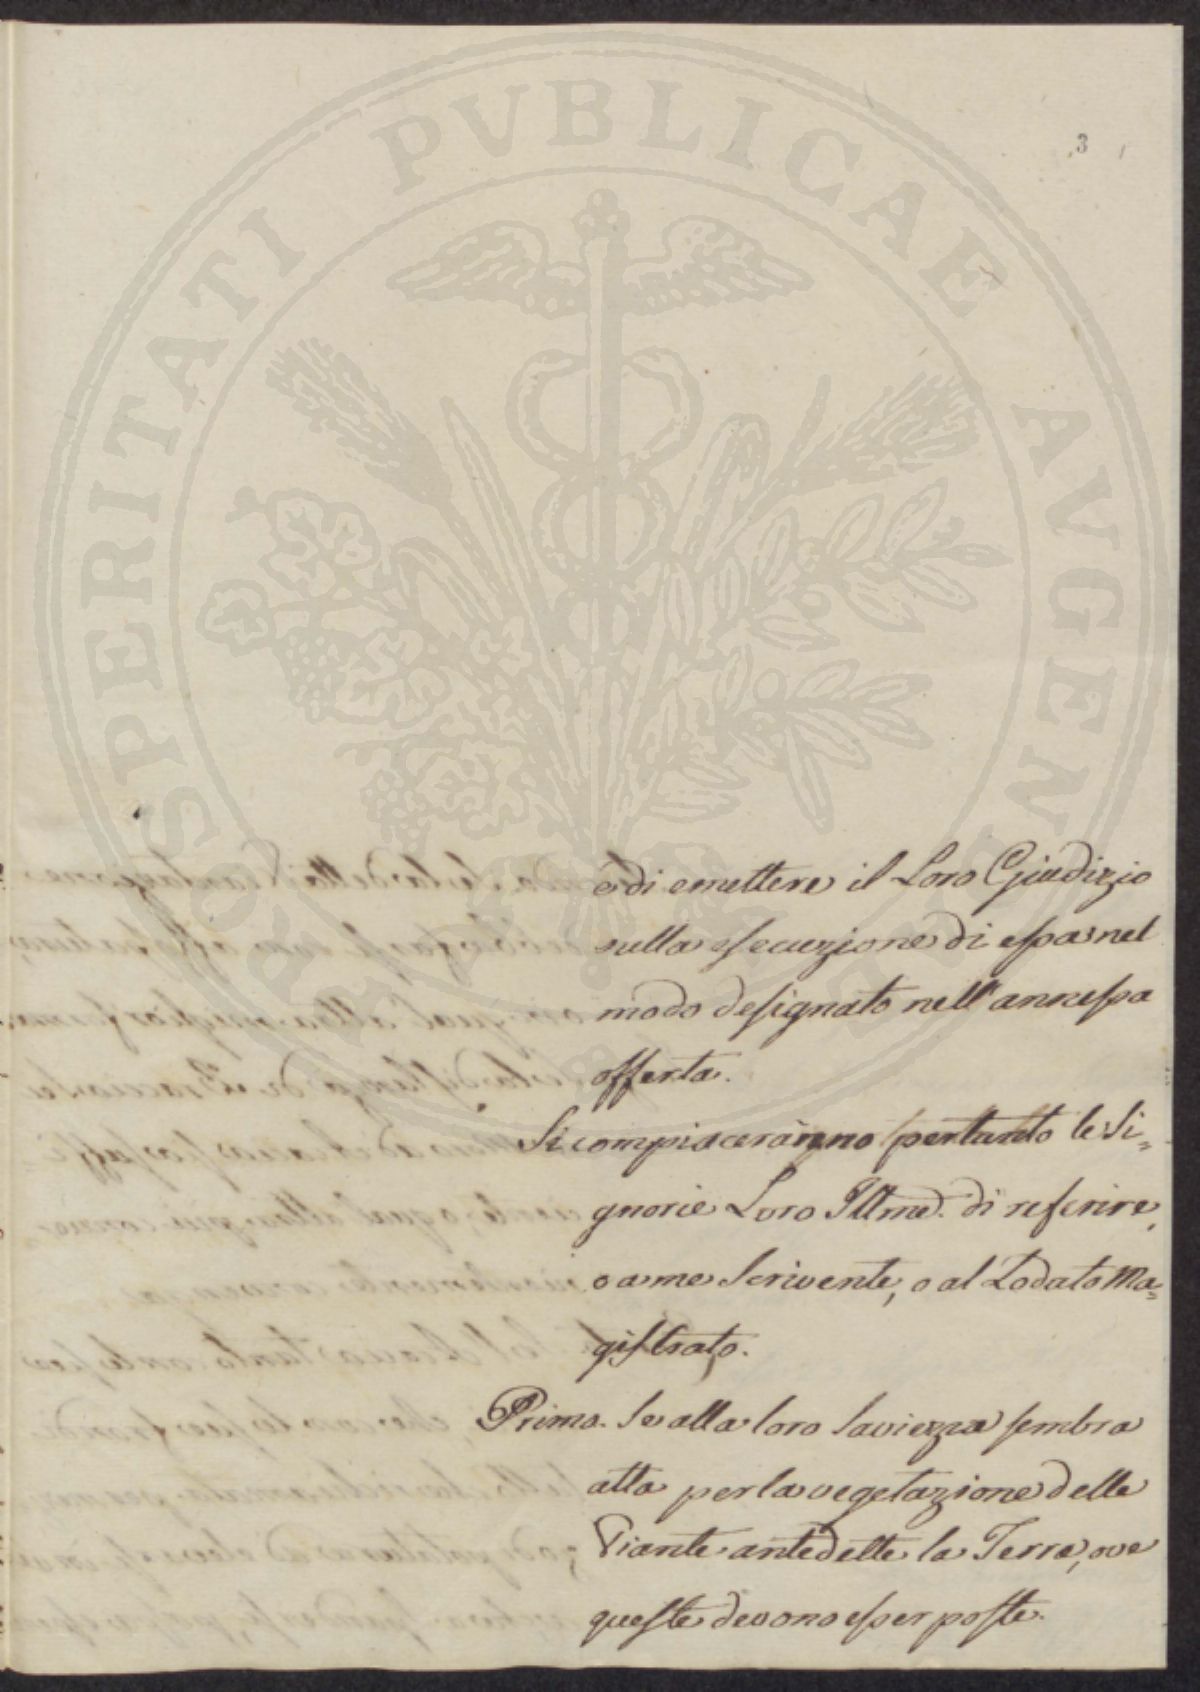 3
PROSPERITATI PVBLICAE AVGENDAE
e di emettere il Loro Giudizio
sulla esecuzione di essa nel
modo designato nell'annessa
offerta.
Si compiaceranno pertanto le Si=
gnorie Loro Illme. di referire,
o a me Scrivente, o al Lodato Ma=
gistrato.
Primo. Se alla loro saviezza sembra
atta per la vegetazione delle
Piante antedette la Terra, ove
queste devono esser poste.